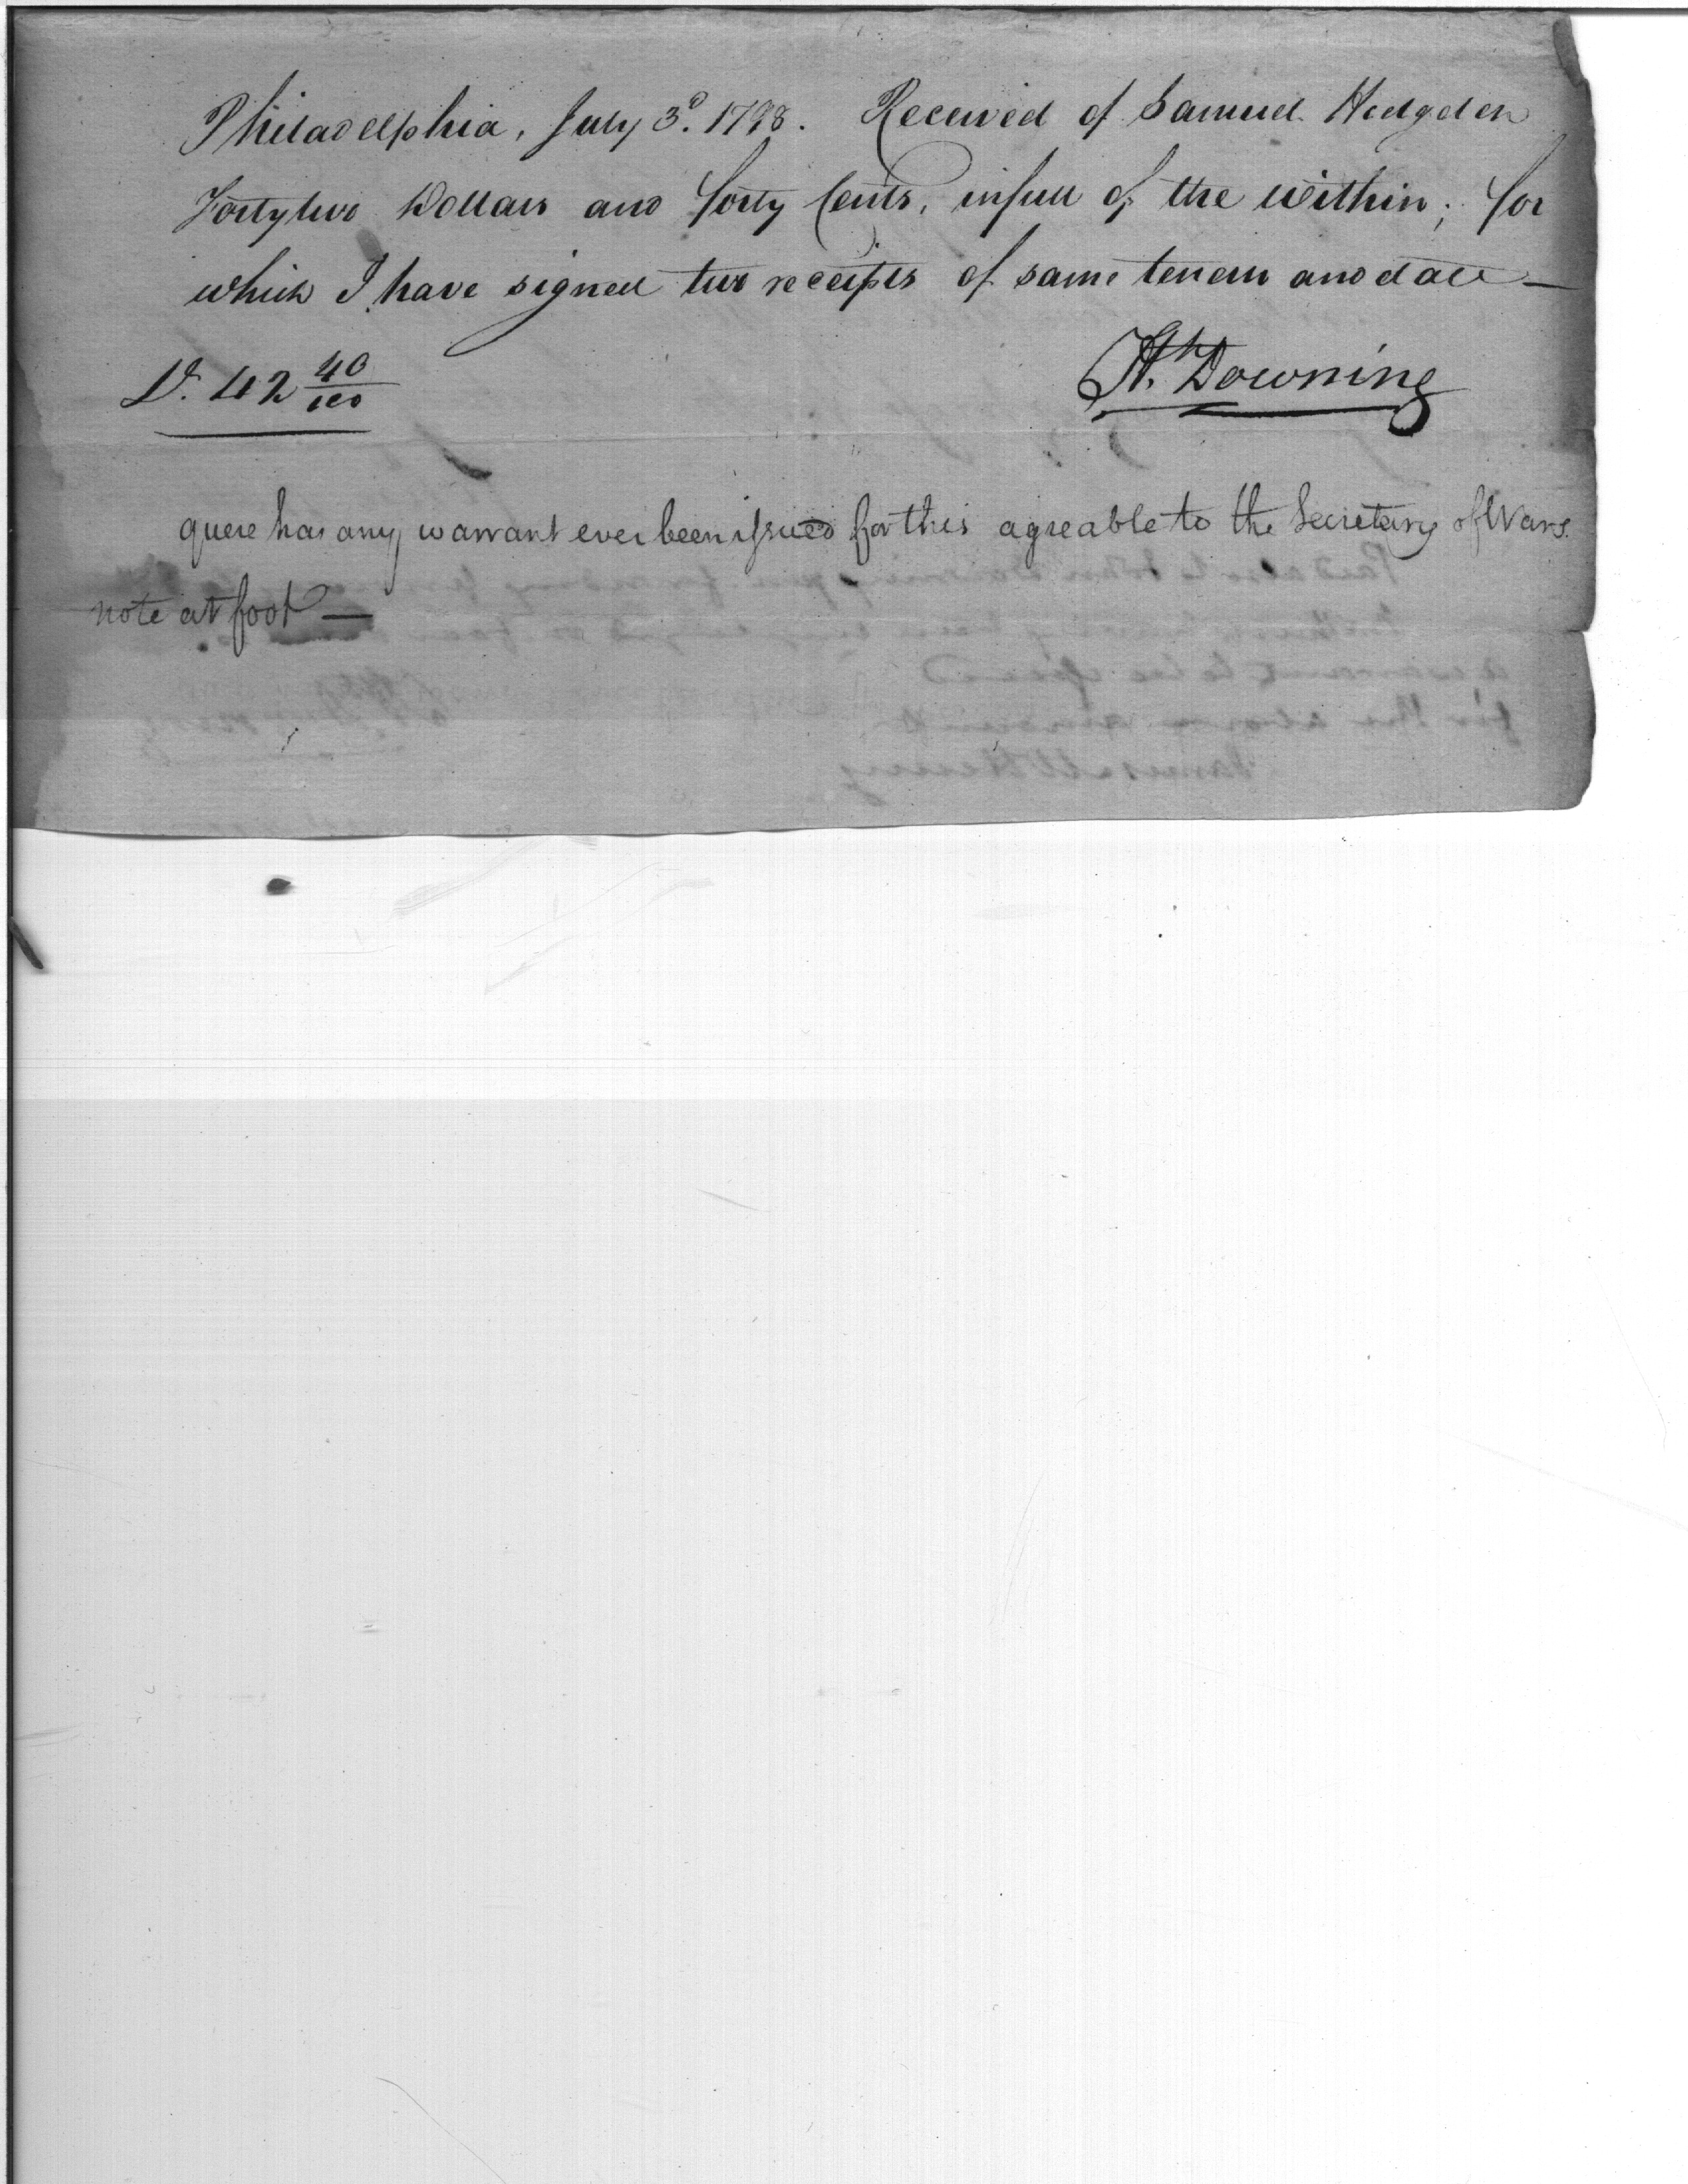 Philadelphia, July 3d. 1798. Received of Samuel Hodgdon
Forty two Dollars and forty Cents, in full of the within; for
which I have signed two receipts of same tenour and date —
D.s 42 40/100
Jth. Downing
quere has any warrant ever been issued for this agreable to the Secretary of Wars
note at foot —